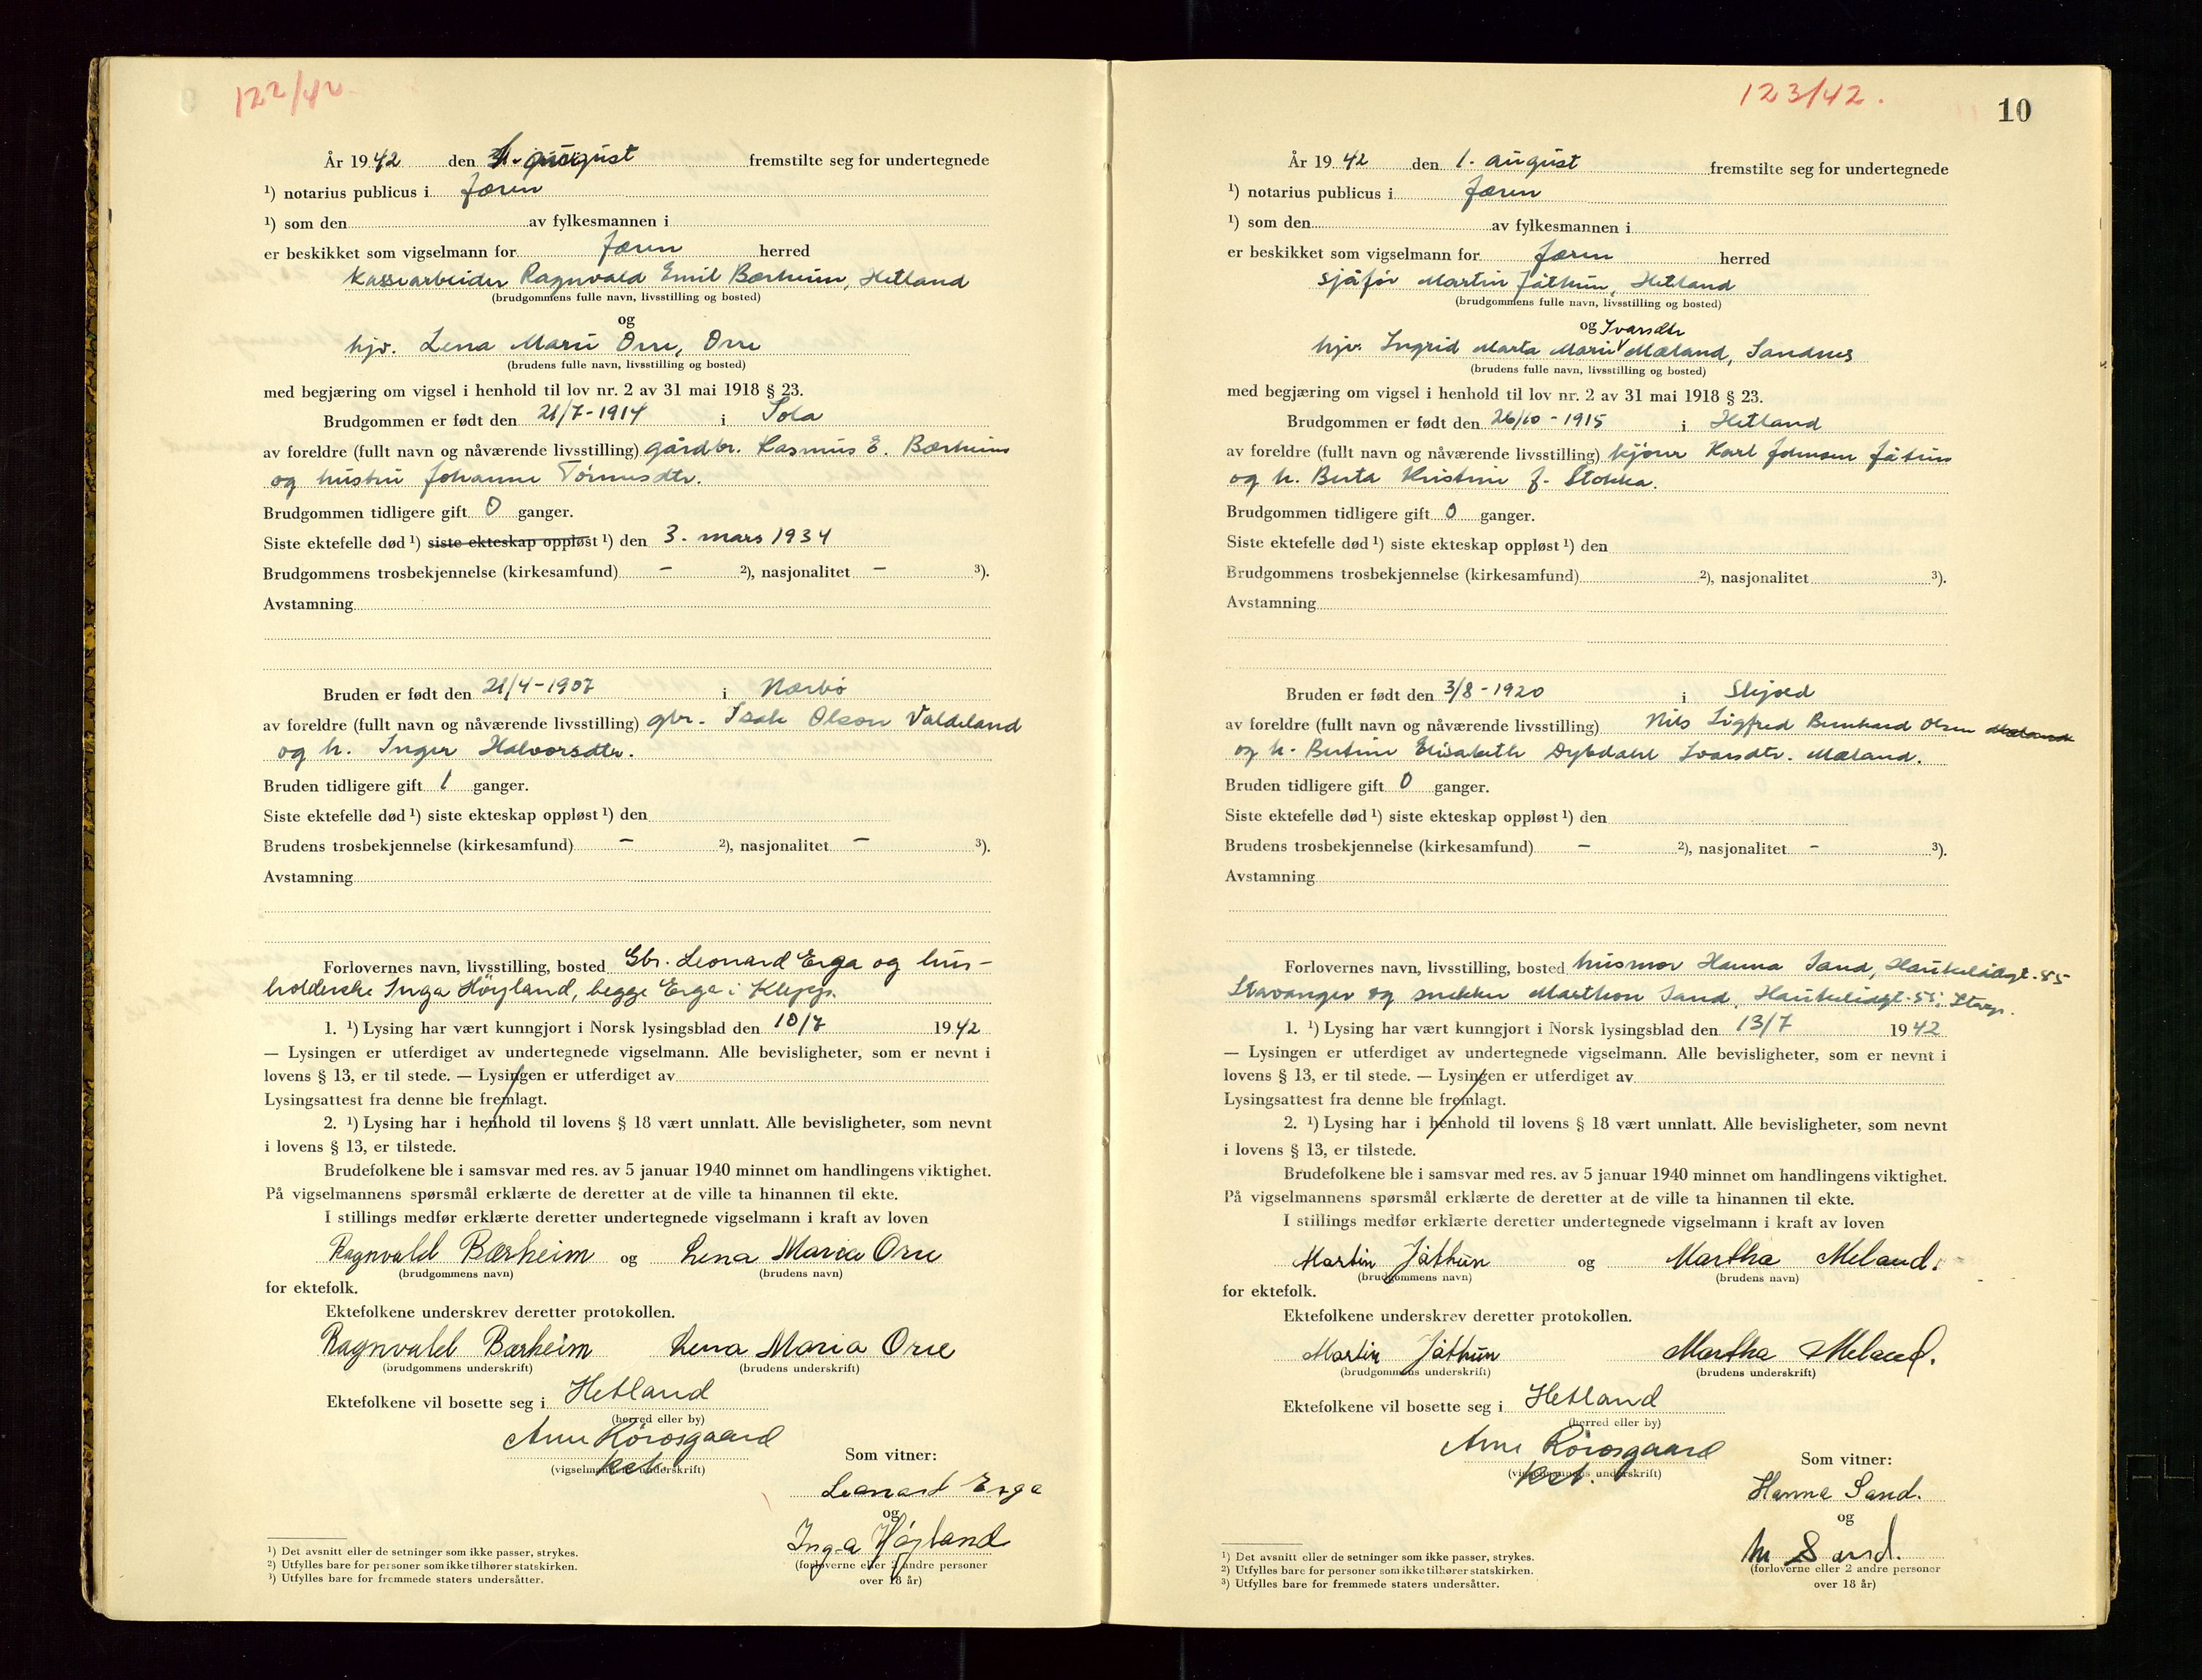 122/42
År 1942 den 1. august fremstilte seg for undertegnede
¹) notarius publicus i Jæren
¹) som den av fylkesmannen i
er beskikket som vigselmann for Jæren herred
Kassearbeider Ragnvald Emil Bærheim, Hetland
(brudgommens fulle navn, livsstilling og bosted)
og
hjv. Lena Marie Orre, Orre
(brudens fulle navn, livsstilling og bosted)
med begjæring om vigsel i henhold til lov nr. 2 av 31 mai 1918 § 23.
Brudgommen er født den 21/7-1914 i Sola
av foreldre (fullt navn og nåværende livsstilling) gårdbr. Rasmus E. Bærheim
og hustru Johanne Tørresdtr.
Brudgommen tidligere gift 0 ganger.
Siste ektefelle død ¹) siste ekteskap oppløst ¹) den 3. mars 1934
Brudgommens trosbekjennelse (kirkesamfund) – ²), nasjonalitet – ³).
Avstamning
Bruden er født den 21/4-1907 i Nærbø
av foreldre (fullt navn og nåværende livsstilling) gbr. Isak Olson Valdeland
og h. Inger Halvorsdtr.
Bruden tidligere gift 1 ganger.
Siste ektefelle død ¹) siste ekteskap oppløst ¹) den
Brudens trosbekjennelse (kirkesamfund) – ²), nasjonalitet – ³).
Avstamning
Forlovernes navn, livsstilling, bosted Gbr. Leonard Erga og hus-
holderske Inga Høyland, begge Erga i Klepp.
1. ¹) Lysing har vært kunngjort i Norsk lysingsblad den 10/7 1942
— Lysingen er utferdiget av undertegnede vigselmann. Alle bevisligheter, som er nevnt i
lovens § 13, er til stede. — Lysingen er utferdiget av
Lysingsattest fra denne ble fremlagt.
2. ¹) Lysing har i henhold til lovens § 18 vært unnlatt. Alle bevisligheter, som nevnt
i lovens § 13, er tilstede.
Brudefolkene ble i samsvar med res. av 5 januar 1940 minnet om handlingens viktighet.
På vigselmannens spørsmål erklærte de deretter at de ville ta hinannen til ekte.
I stillings medfør erklærte deretter undertegnede vigselmann i kraft av loven
Ragnvald Bærheim og Lena Maria Orre
(brudgommens navn) (brudens navn)
for ektefolk.
Ektefolkene underskrev deretter protokollen.
Ragnvald Bærheim Lena Maria Orre
(brudgommens underskrift) (brudens underskrift)
Ektefolkene vil bosette seg i Hetland
(herred eller by)
Arne Rørosgaard
kst.
(vigselmannens underskrift)
Som vitner:
Leonard Erga
og
Inga Høyland
(forloverne eller 2 andre personer
over 18 år)
¹) Det avsnitt eller de setninger som ikke passer, strykes.
²) Utfylles bare for personer som ikke tilhører statskirken.
³) Utfylles bare for fremmede staters undersåtter.
123/42.
10
År 1942 den 1. august fremstilte seg for undertegnede
¹) notarius publicus i Jæren
¹) som den av fylkesmannen i
er beskikket som vigselmann for Jæren herred
sjåfør Martin Jåthun, Hetland
(brudgommens fulle navn, livsstilling og bosted)
og Ivarsdtr
hjv. Ingrid Marta Marie Mæland, Sandnes
(brudens fulle navn, livsstilling og bosted)
med begjæring om vigsel i henhold til lov nr. 2 av 31 mai 1918 § 23.
Brudgommen er født den 26/10-1915 i Hetland
av foreldre (fullt navn og nåværende livsstilling) kjører Karl Johnsen Jåtun
og h. Berta Kristine f. Stokka.
Brudgommen tidligere gift 0 ganger.
Siste ektefelle død ¹) siste ekteskap oppløst ¹) den
Brudgommens trosbekjennelse (kirkesamfund) ²), nasjonalitet ³).
Avstamning
Bruden er født den 3/8-1920 i Skjold
av foreldre (fullt navn og nåværende livsstilling) Nils Sigfred Bernhard Olsen Mæland
og h. Bertine Elisabeth Dybdahl Ivarsdtr. Mæland.
Bruden tidligere gift 0 ganger.
Siste ektefelle død ¹) siste ekteskap oppløst ¹) den
Brudens trosbekjennelse (kirkesamfund) – ²), nasjonalitet – ³).
Avstamning
Forlovernes navn, livsstilling, bosted husmor Hanna Sand, Haukeligt. 55
Stavanger og snekker Marthon Sand, Haukeligt. 55, Stvgr.
1. ¹) Lysing har vært kunngjort i Norsk lysingsblad den 13/7 1942
— Lysingen er utferdiget av undertegnede vigselmann. Alle bevisligheter, som er nevnt i
lovens § 13, er til stede. — Lysingen er utferdiget av
Lysingsattest fra denne ble fremlagt.
2. ¹) Lysing har i henhold til lovens § 18 vært unnlatt. Alle bevisligheter, som nevnt
i lovens § 13, er tilstede.
Brudefolkene ble i samsvar med res. av 5 januar 1940 minnet om handlingens viktighet.
På vigselmannens spørsmål erklærte de deretter at de ville ta hinannen til ekte.
I stillings medfør erklærte deretter undertegnede vigselmann i kraft av loven
Martin Jåthun og Martha Meland.
(brudgommens navn) (brudens navn)
for ektefolk.
Ektefolkene underskrev deretter protokollen.
Martin Jåthun Martha Meland.
(brudgommens underskrift) (brudens underskrift)
Ektefolkene vil bosette seg i Hetland
(herred eller by)
Arne Rørosgaard
kst.
(vigselmannens underskrift)
Som vitner:
Hanna Sand.
og
M Sand.
(forloverne eller 2 andre personer
over 18 år)
¹) Det avsnitt eller de setninger som ikke passer, strykes.
²) Utfylles bare for personer som ikke tilhører statskirken.
³) Utfylles bare for fremmede staters undersåtter.